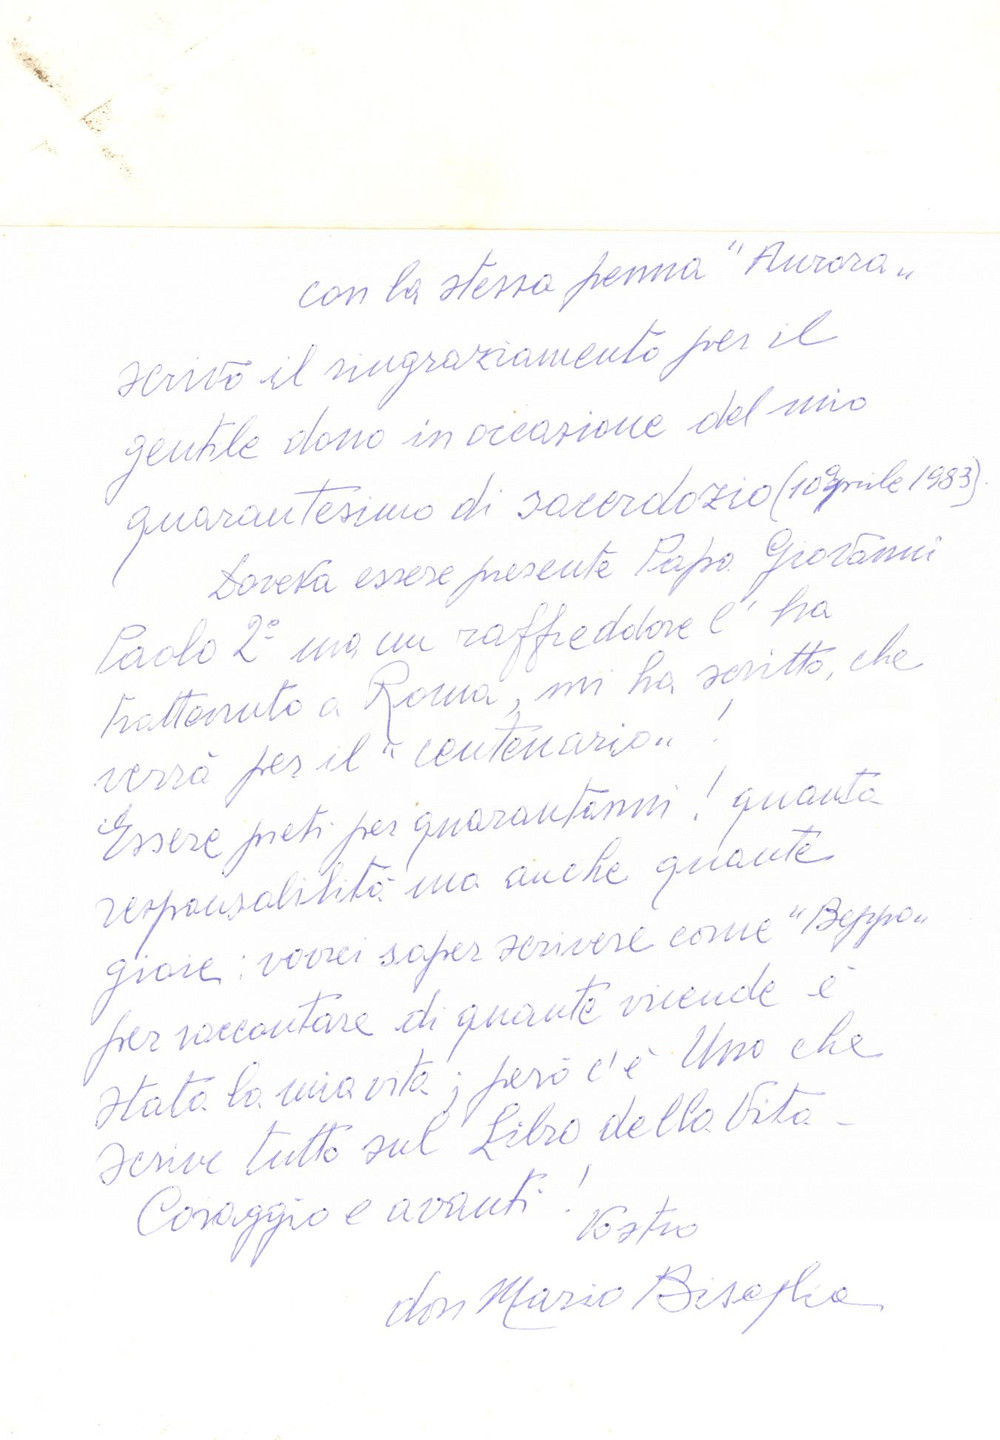 con la stessa penna "Aurora"
scrivo il ringraziamento per il
gentile dono in occasione del mio
quarantesimo di sacerdozio (10 aprile 1983).
Doveva essere presente Papa Giovanni
Paolo 2º ma un raffreddore l' ha
trattenuto a Roma, mi ha scritto, che
verrà per il "centenario" !
Essere preti per quarantanni ! quanta
responsabilità ma anche quante
gioie : vorrei saper scrivere come "Beppo"
per raccontare di quante vicende è
stata la mia vita ; però c'è Uno che
scrive tutto sul Libro della Vita -
Coraggio e avanti !
Vostro
don Mario Bisaglia